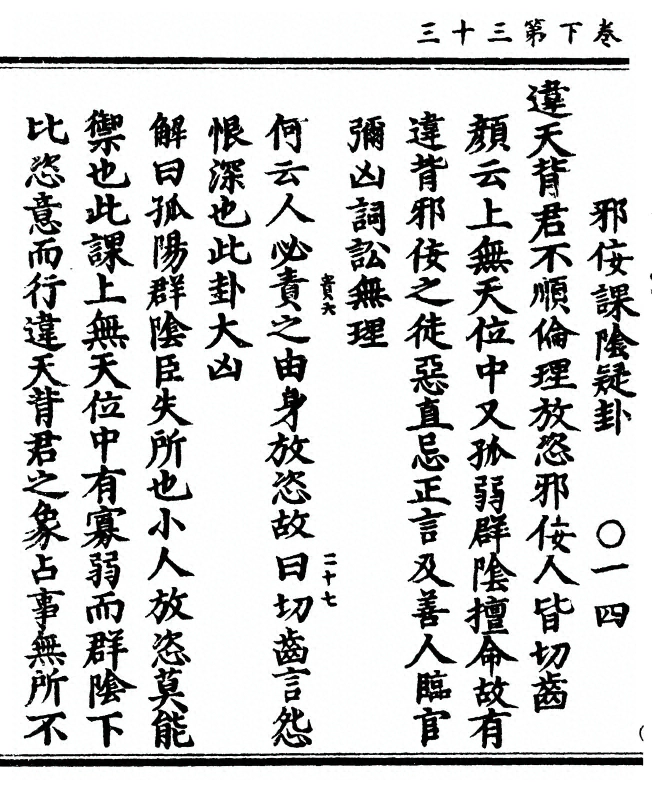 卷下第三十三
邪佞課陰疑卦　〇一四
違天背君不順倫理放恣邪佞人皆切齒
顏云上無天位中又孤弱群陰擅命故有
違背邪佞之徒惡直忌正言及善人臨官
彌凶詞訟無理
何云人必責之由身放恣故曰切齒言怨
害貝六
二十七
恨深也此卦大凶
解曰孤陽群陰臣失所也小人放恣莫能
禦也此課上無天位中有寡弱而群陰下
比恣意而行違天背君之象占事無所不